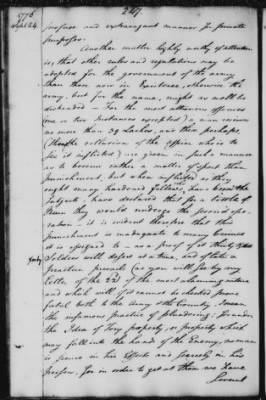 247
1776
Sept 24
profuse and extravagant manner for private
purposes.
Another matter highly worthy of attention
is, that other rules and regulations may be
adopted for the government of the army
than those now in Existence, otherwise the
army, but for the name, might as well be
disbanded - For the most attrocious offences
(one or two instances excepted) a man receives
no more than 39 Lashes, and these perhaps,
(through the collusion of the Officer who is to
see it inflicted) are given in such a manner
as to become rather a matter of sport than
punishment, but when inflicted as they
ought many hardened fellows, who have been the
Subjects, have declared that for a bottle of
Rum they would undergo the second ope-
ration - it is evident therefore that this
punishment is inadequate to many Crimes
it is assigned to - as a proof of it thirty & 40
Soldiers will desert at a time, and of late a
practice prevails (as you will see by my
Letter of the 22d of the most alarming nature
and which will if it cannot be checked prove
fatal both to the Army & the Country - I mean
the infamous practice of plundering. For under
the Idea of Tory property, or property which
may fall into the hands of the Enemy, no man
is secure in his Effects and scarcely in his
person. for in order to get at them we have
several